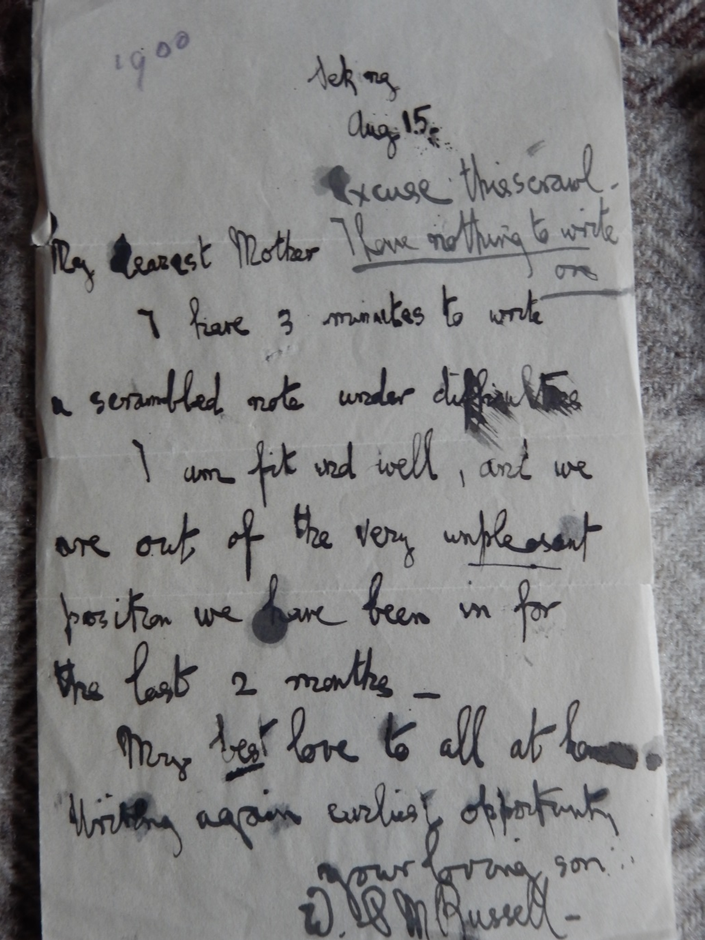 1900
Peking
Aug 15.
Excuse this scrawl.
I have nothing to write
on
My dearest Mother
I have 3 minutes to write
a scrambled note under difficulties
I am fit and well, and we
are out of the very unpleasant
position we have been in for
the last 2 months –
My best love to all at home
Writing again earliest opportunity
your loving son
W. P M Russell –